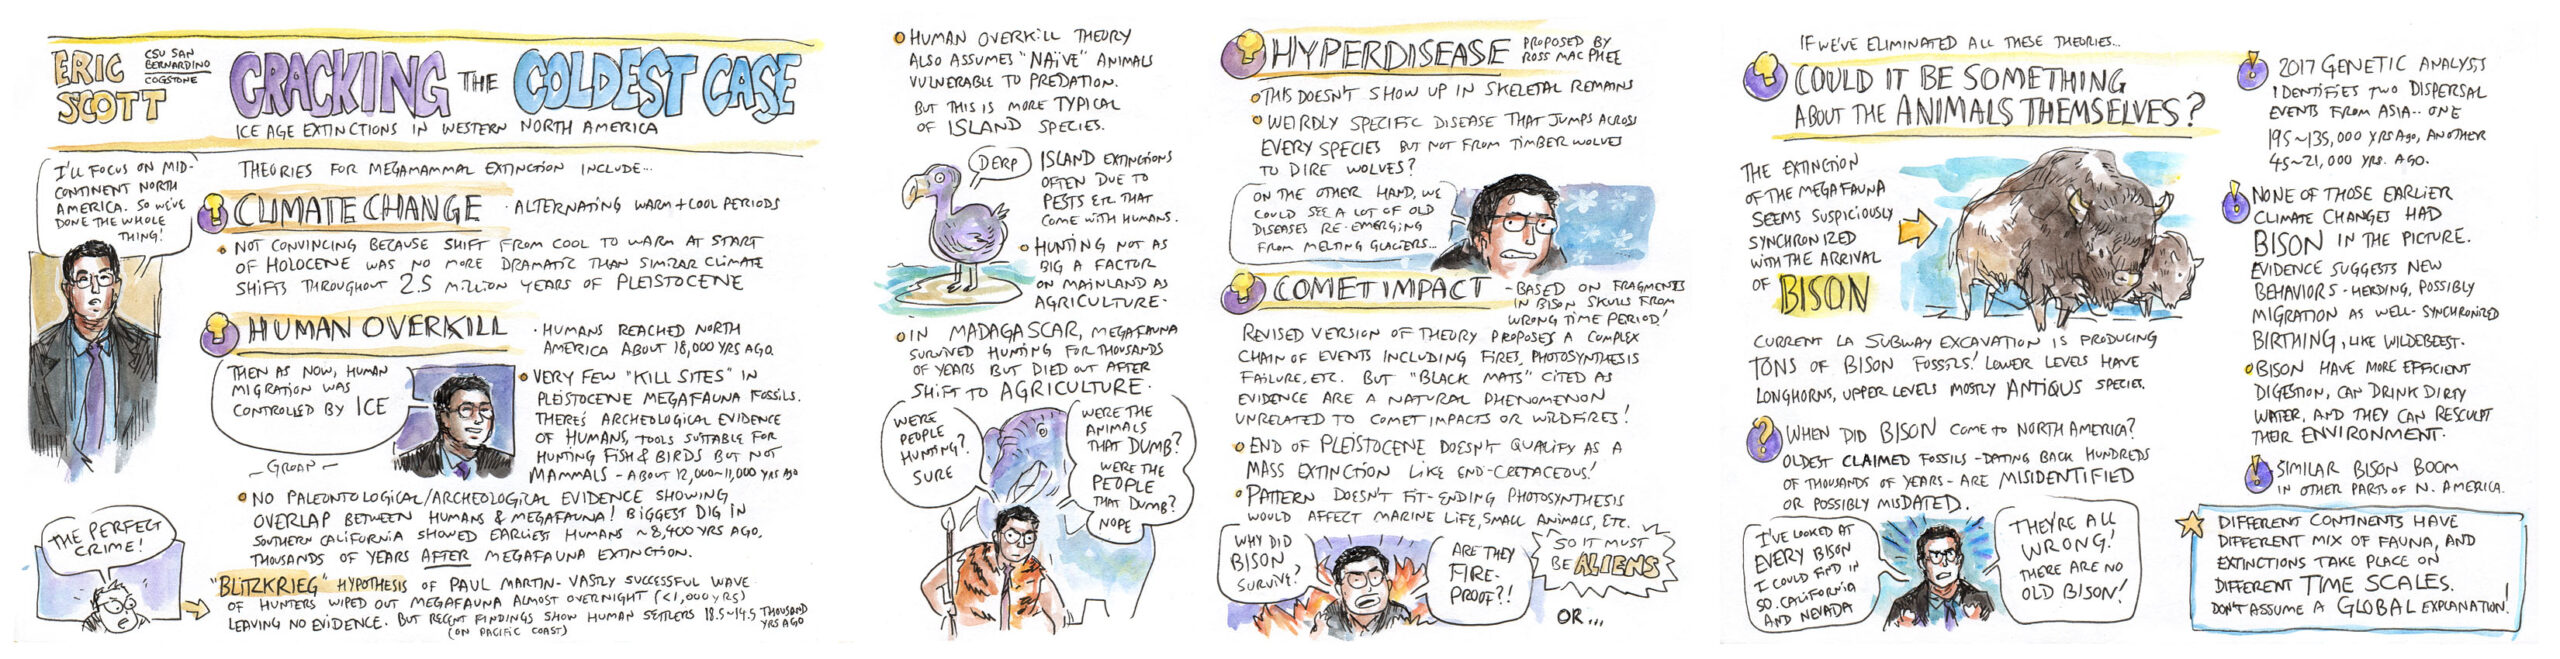 ERIC
SCOTT
CSU SAN
BERNARDINO
COGSTONE
CRACKING THE COLDEST CASE
ICE AGE EXTINCTIONS IN WESTERN NORTH AMERICA
I'LL FOCUS ON MID-
CONTINENT NORTH
AMERICA. SO WE'VE
DONE THE WHOLE
THING!
THEORIES FOR MEGAMAMMAL EXTINCTION INCLUDE...
CLIMATE CHANGE
• ALTERNATING WARM + COOL PERIODS
• NOT CONVINCING BECAUSE SHIFT FROM COOL TO WARM AT START
OF HOLOCENE WAS NO MORE DRAMATIC THAN SIMILAR CLIMATE
SHIFTS THROUGHOUT 2.5 MILLION YEARS OF PLEISTOCENE
HUMAN OVERKILL
• HUMANS REACHED NORTH
AMERICA ABOUT 18,000 YRS AGO.
THEN AS NOW, HUMAN
MIGRATION WAS
CONTROLLED BY ICE
-GROAN-
• VERY FEW "KILL SITES" IN
PLEISTOCENE MEGAFAUNA FOSSILS.
THERE'S ARCHEOLOGICAL EVIDENCE
OF HUMANS, TOOLS SUITABLE FOR
HUNTING FISH & BIRDS BUT NOT
MAMMALS - ABOUT 12,000~11,000 YRS AGO
• NO PALEONTOLOGICAL/ARCHEOLOGICAL EVIDENCE SHOWING
OVERLAP BETWEEN HUMANS & MEGAFAUNA! BIGGEST DIG IN
SOUTHERN CALIFORNIA SHOWED EARLIEST HUMANS ~8,400 YRS AGO,
THOUSANDS OF YEARS AFTER MEGAFAUNA EXTINCTION.
THE PERFECT
CRIME!
"BLITZKRIEG" HYPOTHESIS OF PAUL MARTIN - VASTLY SUCCESSFUL WAVE
OF HUNTERS WIPED OUT MEGAFAUNA ALMOST OVERNIGHT (<1,000 YRS)
LEAVING NO EVIDENCE. BUT RECENT FINDINGS SHOW HUMAN SETTLERS 18.5~14.5 THOUSAND
YRS AGO
(ON PACIFIC COAST)
• HUMAN OVERKILL THEORY
ALSO ASSUMES "NAÏVE" ANIMALS
VULNERABLE TO PREDATION.
BUT THIS IS MORE TYPICAL
OF ISLAND SPECIES.
DERP
ISLAND EXTINCTIONS
OFTEN DUE TO
PESTS ETC THAT
COME WITH HUMANS.
• HUNTING NOT AS
BIG A FACTOR
ON MAINLAND AS
AGRICULTURE.
• IN MADAGASCAR, MEGAFAUNA
SURVIVED HUNTING FOR THOUSANDS
OF YEARS BUT DIED OUT AFTER
SHIFT TO AGRICULTURE.
WERE
PEOPLE
HUNTING?
SURE
WERE THE
ANIMALS
THAT DUMB?
WERE THE
PEOPLE
THAT DUMB?
NOPE
HYPERDISEASE
PROPOSED BY
ROSS MAC PHEE
• THIS DOESN'T SHOW UP IN SKELETAL REMAINS
• WEIRDLY SPECIFIC DISEASE THAT JUMPS ACROSS
EVERY SPECIES BUT NOT FROM TIMBER WOLVES
TO DIRE WOLVES?
ON THE OTHER HAND, WE
COULD SEE A LOT OF OLD
DISEASES RE-EMERGING
FROM MELTING GLACIERS...
COMET IMPACT
- BASED ON FRAGMENTS
IN BISON SKULLS FROM
WRONG TIME PERIOD!
REVISED VERSION OF THEORY PROPOSES A COMPLEX
CHAIN OF EVENTS INCLUDING FIRES, PHOTOSYNTHESIS
FAILURE, ETC. BUT "BLACK MATS" CITED AS
EVIDENCE ARE A NATURAL PHENOMENON
UNRELATED TO COMET IMPACTS OR WILDFIRES!
• END OF PLEISTOCENE DOESN'T QUALIFY AS A
MASS EXTINCTION LIKE END-CRETACEOUS!
• PATTERN DOESN'T FIT - ENDING PHOTOSYNTHESIS
WOULD AFFECT MARINE LIFE, SMALL ANIMALS, ETC.
WHY DID
BISON
SURVIVE?
ARE THEY
FIRE-
PROOF?!
SO IT MUST
BE ALIENS
OR...
IF WE'VE ELIMINATED ALL THESE THEORIES...
COULD IT BE SOMETHING
ABOUT THE ANIMALS THEMSELVES?
THE EXTINCTION
OF THE MEGAFAUNA
SEEMS SUSPICIOUSLY
SYNCHRONIZED
WITH THE ARRIVAL
OF BISON
CURRENT LA SUBWAY EXCAVATION IS PRODUCING
TONS OF BISON FOSSILS! LOWER LEVELS HAVE
LONGHORNS, UPPER LEVELS MOSTLY ANTIQUS SPECIES.
WHEN DID BISON COME TO NORTH AMERICA?
OLDEST CLAIMED FOSSILS - DATING BACK HUNDREDS
OF THOUSANDS OF YEARS - ARE MISIDENTIFIED
OR POSSIBLY MISDATED.
I'VE LOOKED AT
EVERY BISON
I COULD FIND IN
SO. CALIFORNIA
AND NEVADA
THEY'RE ALL
WRONG!
THERE ARE NO
OLD BISON!
2017 GENETIC ANALYSIS
IDENTIFIES TWO DISPERSAL
EVENTS FROM ASIA - ONE
195~135,000 YRS AGO, ANOTHER
45~21,000 YRS. AGO.
NONE OF THOSE EARLIER
CLIMATE CHANGES HAD
BISON IN THE PICTURE.
EVIDENCE SUGGESTS NEW
BEHAVIORS - HERDING, POSSIBLY
MIGRATION AS WELL - SYNCHRONIZED
BIRTHING, LIKE WILDEBEEST.
• BISON HAVE MORE EFFICIENT
DIGESTION, CAN DRINK DIRTY
WATER, AND THEY CAN RESCULPT
THEIR ENVIRONMENT.
SIMILAR BISON BOOM
IN OTHER PARTS OF N. AMERICA.
DIFFERENT CONTINENTS HAVE
DIFFERENT MIX OF FAUNA, AND
EXTINCTIONS TAKE PLACE ON
DIFFERENT TIME SCALES.
DON'T ASSUME A GLOBAL EXPLANATION!